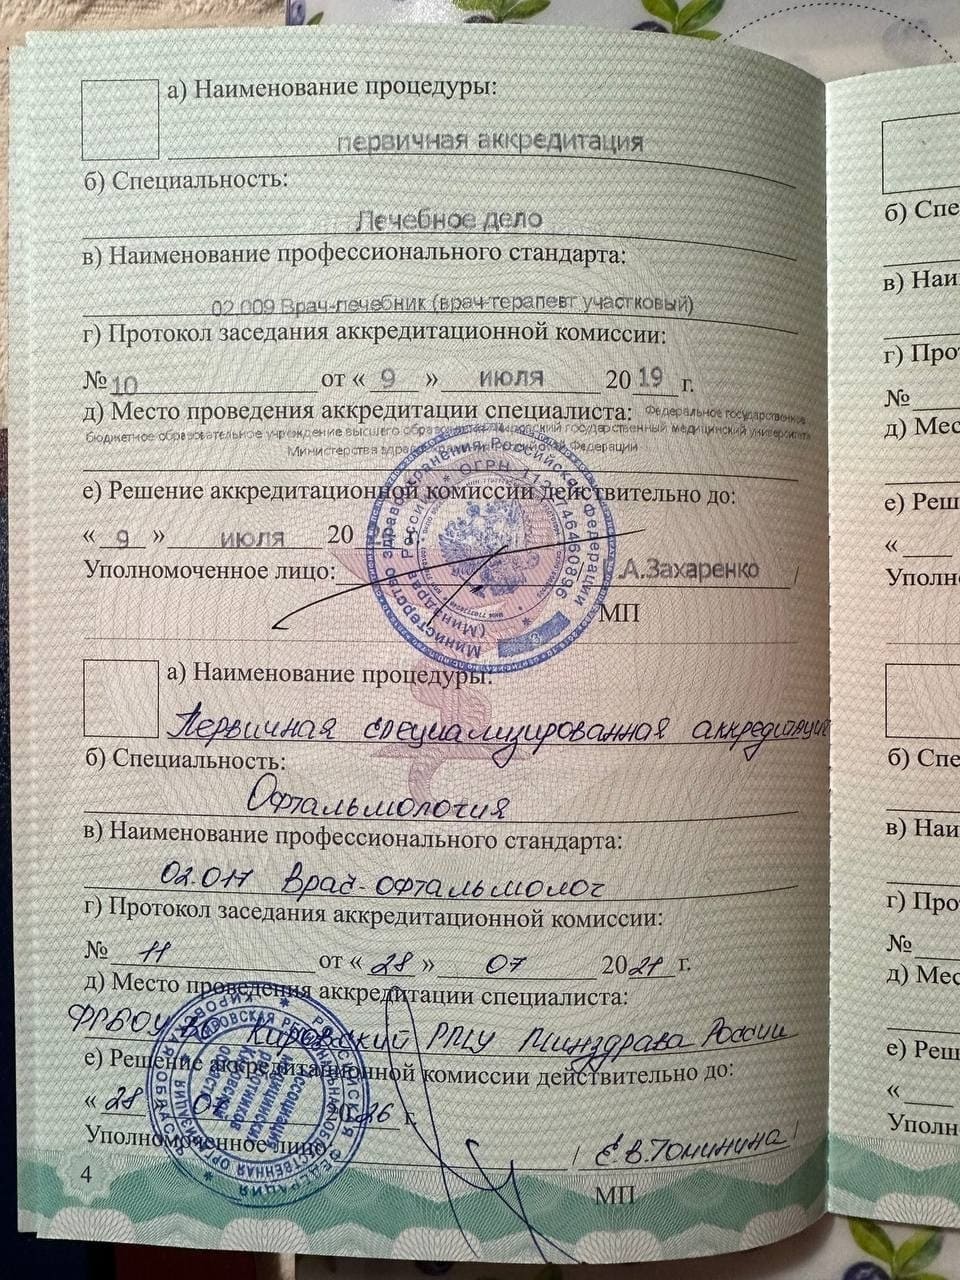 а) Наименование процедуры:
первичная аккредитация
б) Специальность:
Лечебное дело
в) Наименование профессионального стандарта:
02.009 Врач-лечебник (врач-терапевт участковый)
г) Протокол заседания аккредитационной комиссии:
№ 10 от « 9 » июля 20 19 г.
д) Место проведения аккредитации специалиста: Федеральное государственное
бюджетное образовательное учреждение высшего образования Кировский государственный медицинский университет
Министерства здравоохранения Российской Федерации
е) Решение аккредитационной комиссии действительно до:
« 9 » июля 20 г.
Уполномоченное лицо: .А.Захаренко /
МП
Министерство здравоохранения Российской Федерации
(Минздрав России) * ОГРН 1127746460896 *
а) Наименование процедуры:
Первичная специализированная аккредитация
б) Специальность:
Офтальмология
в) Наименование профессионального стандарта:
02.017 Врач-офтальмолог
г) Протокол заседания аккредитационной комиссии:
№ 11 от « 28 » 07 2021 г.
д) Место проведения аккредитации специалиста:
ФГБОУ ВО Кировский ГМУ Минздрава России
е) Решение аккредитационной комиссии действительно до:
« 28 07 2026 г.
Уполномоченное лицо / Е.В.Томинина /
МП
РОССИЙСКАЯ ФЕДЕРАЦИЯ * КИРОВСКАЯ ОБЛАСТЬ *
КИРОВСКАЯ РЕГИОНАЛЬНАЯ ОБЩЕСТВЕННАЯ ОРГАНИЗАЦИЯ
Ассоциация
медицинских
работников
Кировской
области
4
б) Спе
в) Наи
г) Про
№
д) Мес
е) Реш
«
Уполн
б) Спе
в) Наи
г) Про
№
д) Мес
е) Реш
«
Уполн